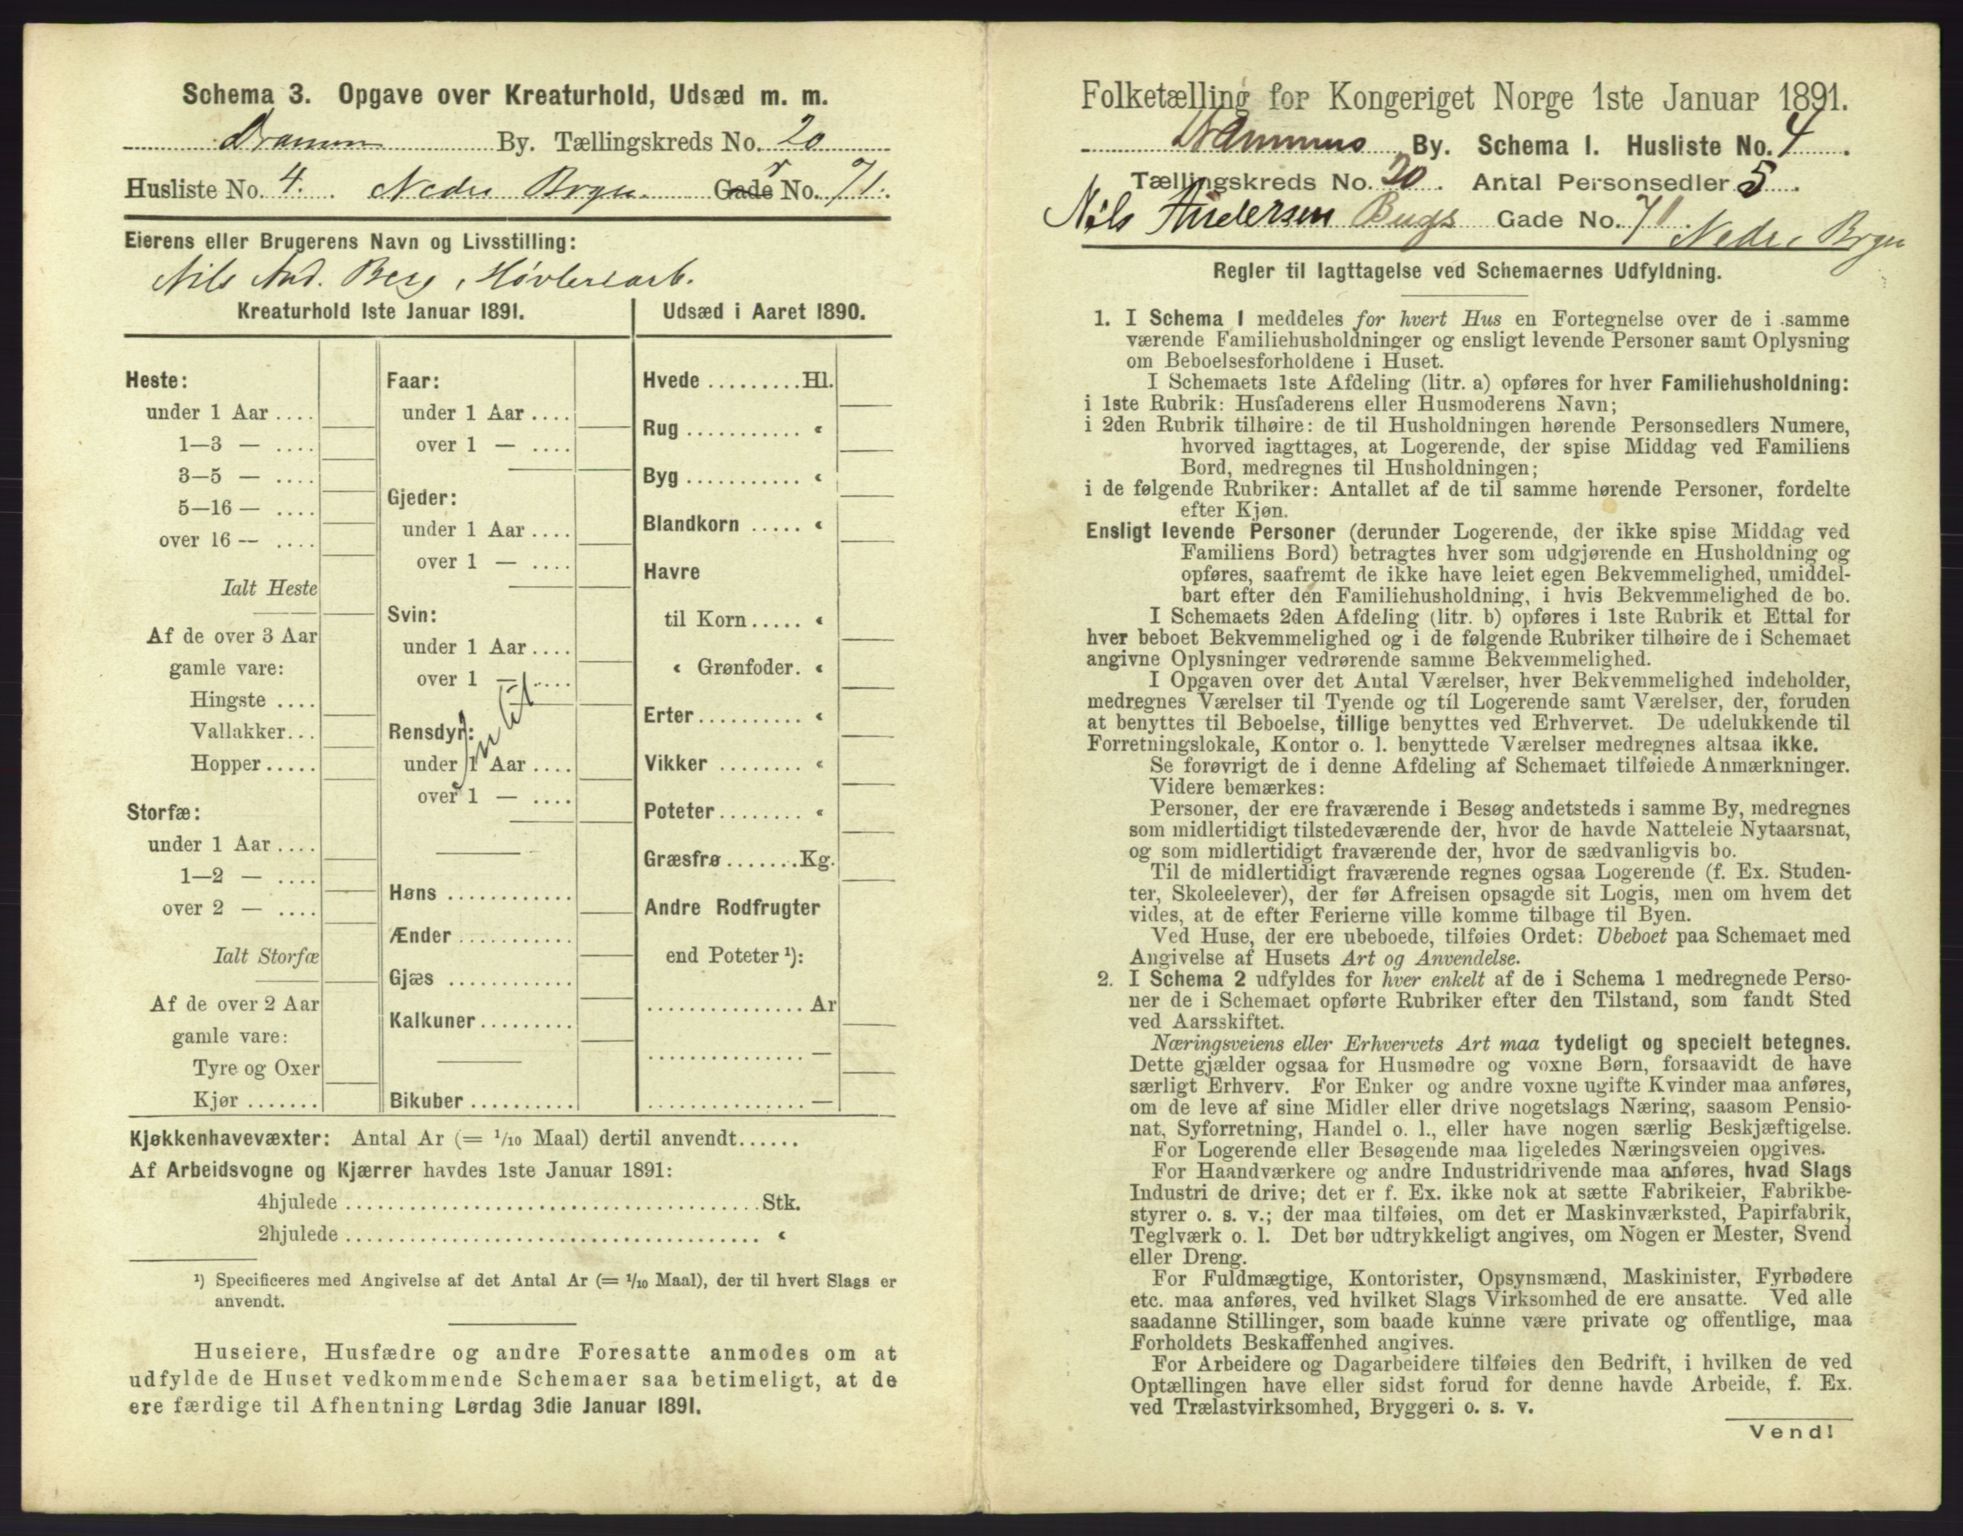 Schema 3. Opgave over Kreaturhold, Udsæd m. m.
Drammen By. Tællingskreds No. 20
Husliste No. 4. Nedre Gade No. 71.
Eierens eller Brugerens Navn og Livsstilling:
Nils And. Berg, Høvleriarb.
Kreaturhold 1ste Januar 1891.
Heste:
under 1 Aar ....
1—3 — ....
3—5 — ....
5—16 — ....
over 16 — ....
Ialt Heste
Af de over 3 Aar
gamle vare:
Hingste ....
Vallakker...
Hopper.....
Storfæ:
under 1 Aar ....
1—2 — ....
over 2 — ....
Ialt Storfæ
Af de over 2 Aar
gamle vare:
Tyre og Oxer
Kjør .......
Faar:
under 1 Aar ....
over 1 — ....
Gjeder:
under 1 Aar ....
over 1 — ....
Svin:
under 1 Aar ....
over 1 — ....
Rensdyr:
under 1 Aar ....
over 1 — ....
Intet
Høns ............
Ænder...........
Gjæs ............
Kalkuner.........
Bikuber ..........
Udsæd i Aaret 1890.
Hvede .........Hl.
Rug ........... «
Byg ........... «
Blandkorn ..... «
Havre
til Korn..... «
« Grønfoder. «
Erter.......... «
Vikker ........ «
Poteter........ «
Græsfrø.......Kg.
Andre Rodfrugter
end Poteter ¹):
...............Ar
...............—
...............—
Kjøkkenhavevæxter: Antal Ar (= 1/10 Maal) dertil anvendt......
Af Arbeidsvogne og Kjærrer havdes 1ste Januar 1891:
4hjulede .....................................Stk.
2hjulede ..................................... «
¹) Specificeres med Angivelse af det Antal Ar (= 1/10 Maal), der til hvert Slags er
anvendt.
Huseiere, Husfædre og andre Foresatte anmodes om at
udfylde de Huset vedkommende Schemaer saa betimeligt, at de
ere færdige til Afhentning Lørdag 3die Januar 1891.
Folketælling for Kongeriget Norge 1ste Januar 1891.
Drammens By. Schema I. Husliste No. 4.
Tællingskreds No. 20. Antal Personsedler 5.
Nils Andersen Gade No. 71. Nedre
Regler til Iagttagelse ved Schemaernes Udfyldning.
1. I Schema 1 meddeles for hvert Hus en Fortegnelse over de i samme
værende Familiehusholdninger og ensligt levende Personer samt Oplysning
om Beboelsesforholdene i Huset.
I Schemaets 1ste Afdeling (litr. a) opføres for hver Familiehusholdning:
i 1ste Rubrik: Husfaderens eller Husmoderens Navn;
i 2den Rubrik tilhøire: de til Husholdningen hørende Personsedlers Numere,
hvorved iagttages, at Logerende, der spise Middag ved Familiens
Bord, medregnes til Husholdningen;
i de følgende Rubriker: Antallet af de til samme hørende Personer, fordelte
efter Kjøn.
Ensligt levende Personer (derunder Logerende, der ikke spise Middag ved
Familiens Bord) betragtes hver som udgjørende en Husholdning og
opføres, saafremt de ikke have leiet egen Bekvemmelighed, umiddel-
bart efter den Familiehusholdning, i hvis Bekvemmelighed de bo.
I Schemaets 2den Afdeling (litr. b) opføres i 1ste Rubrik et Ettal for
hver beboet Bekvemmelighed og i de følgende Rubriker tilhøire de i Schemaet
angivne Oplysninger vedrørende samme Bekvemmelighed.
I Opgaven over det Antal Værelser, hver Bekvemmelighed indeholder,
medregnes Værelser til Tyende og til Logerende samt Værelser, der, foruden
at benyttes til Beboelse, tillige benyttes ved Erhvervet. De udelukkende til
Forretningslokale, Kontor o. l. benyttede Værelser medregnes altsaa ikke.
Se forøvrigt de i denne Afdeling af Schemaet tilføiede Anmærkninger.
Videre bemærkes:
Personer, der ere fraværende i Besøg andetsteds i samme By, medregnes
som midlertidigt tilstedeværende der, hvor de havde Natteleie Nytaarsnat,
og som midlertidigt fraværende der, hvor de sædvanligvis bo.
Til de midlertidigt fraværende regnes ogsaa Logerende (f. Ex. Studen-
ter, Skoleelever), der før Afreisen opsagde sit Logis, men om hvem det
vides, at de efter Ferierne ville komme tilbage til Byen.
Ved Huse, der ere ubeboede, tilføies Ordet: Ubeboet paa Schemaet med
Angivelse af Husets Art og Anvendelse.
2. I Schema 2 udfyldes for hver enkelt af de i Schema 1 medregnede Perso-
ner de i Schemaet opførte Rubriker efter den Tilstand, som fandt Sted
ved Aarsskiftet.
Næringsveiens eller Erhvervets Art maa tydeligt og specielt betegnes.
Dette gjælder ogsaa for Husmødre og voxne Børn, forsaavidt de have
særligt Erhverv. For Enker og andre voxne ugifte Kvinder maa anføres,
om de leve af sine Midler eller drive nogetslags Næring, saasom Pensio-
nat, Syforretning, Handel o. l., eller have nogen særlig Beskjæftigelse.
For Logerende eller Besøgende maa ligeledes Næringsveien opgives.
For Haandværkere og andre Industridrivende maa anføres, hvad Slags
Industri de drive; det er f. Ex. ikke nok at sætte Fabrikeier, Fabrikbe-
styrer o. s. v.; der maa tilføies, om det er Maskinværksted, Papirfabrik,
Teglværk o. l. Det bør udtrykkeligt angives, om Nogen er Mester, Svend
eller Dreng.
For Fuldmægtige, Kontorister, Opsynsmænd, Maskinister, Fyrbødere
etc. maa anføres, ved hvilket Slags Virksomhed de ere ansatte. Ved alle
saadanne Stillinger, som baade kunne være private og offentlige, maa
Forholdets Beskaffenhed angives.
For Arbeidere og Dagarbeidere tilføies den Bedrift, i hvilken de ved
Optællingen have eller sidst forud for denne havde Arbeide, f. Ex.
ved Trælastvirksomhed, Bryggeri o. s. v.
Vend!